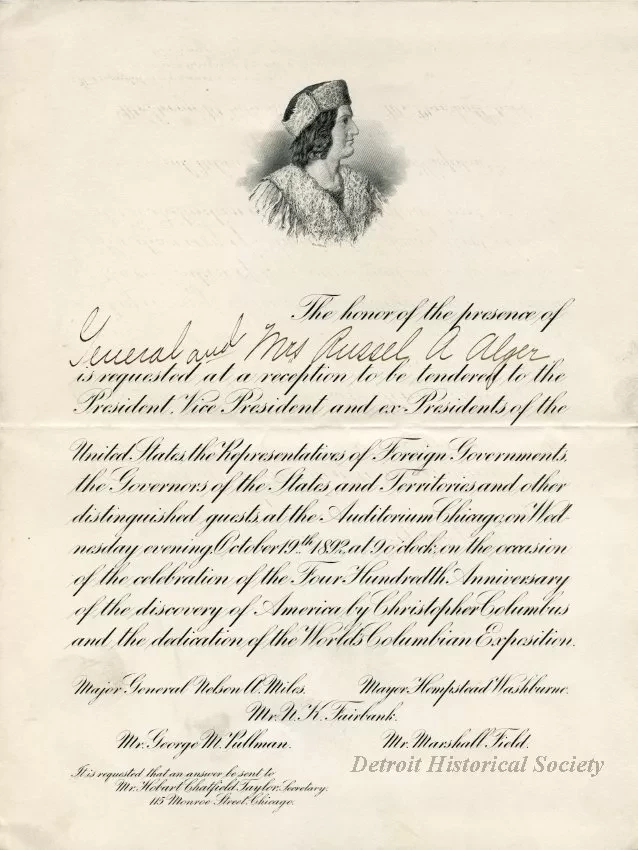 The honor of the presence of
General and Mrs Russel A Alger
is requested at a reception to be tendered to the
President, Vice President and ex-Presidents of the
United States, the Representatives of Foreign Governments,
the Governors of the States and Territories and other
distinguished guests, at the Auditorium Chicago, on Wed-
nesday evening, October 19th 1892, at 9 o'clock, on the occasion
of the celebration of the Four Hundredth Anniversary
of the discovery of America by Christopher Columbus
and the dedication of the World's Columbian Exposition.
Major General Nelson A. Miles. Mayor Hempstead Washburne.
Mr. N. K. Fairbank.
Mr. George M. Pullman. Mr. Marshall Field.
Detroit Historical Society
It is requested that an answer be sent to
Mr. Hobart Chatfield Taylor, Secretary.
115 Monroe Street, Chicago.